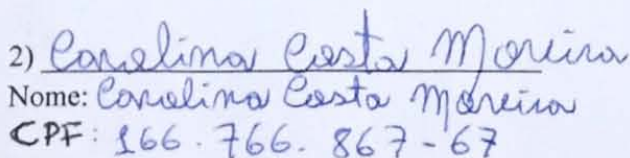 2) Carolina Costa Moreira
Nome: Carolina Costa Moreira
CPF: 166.766.867-67